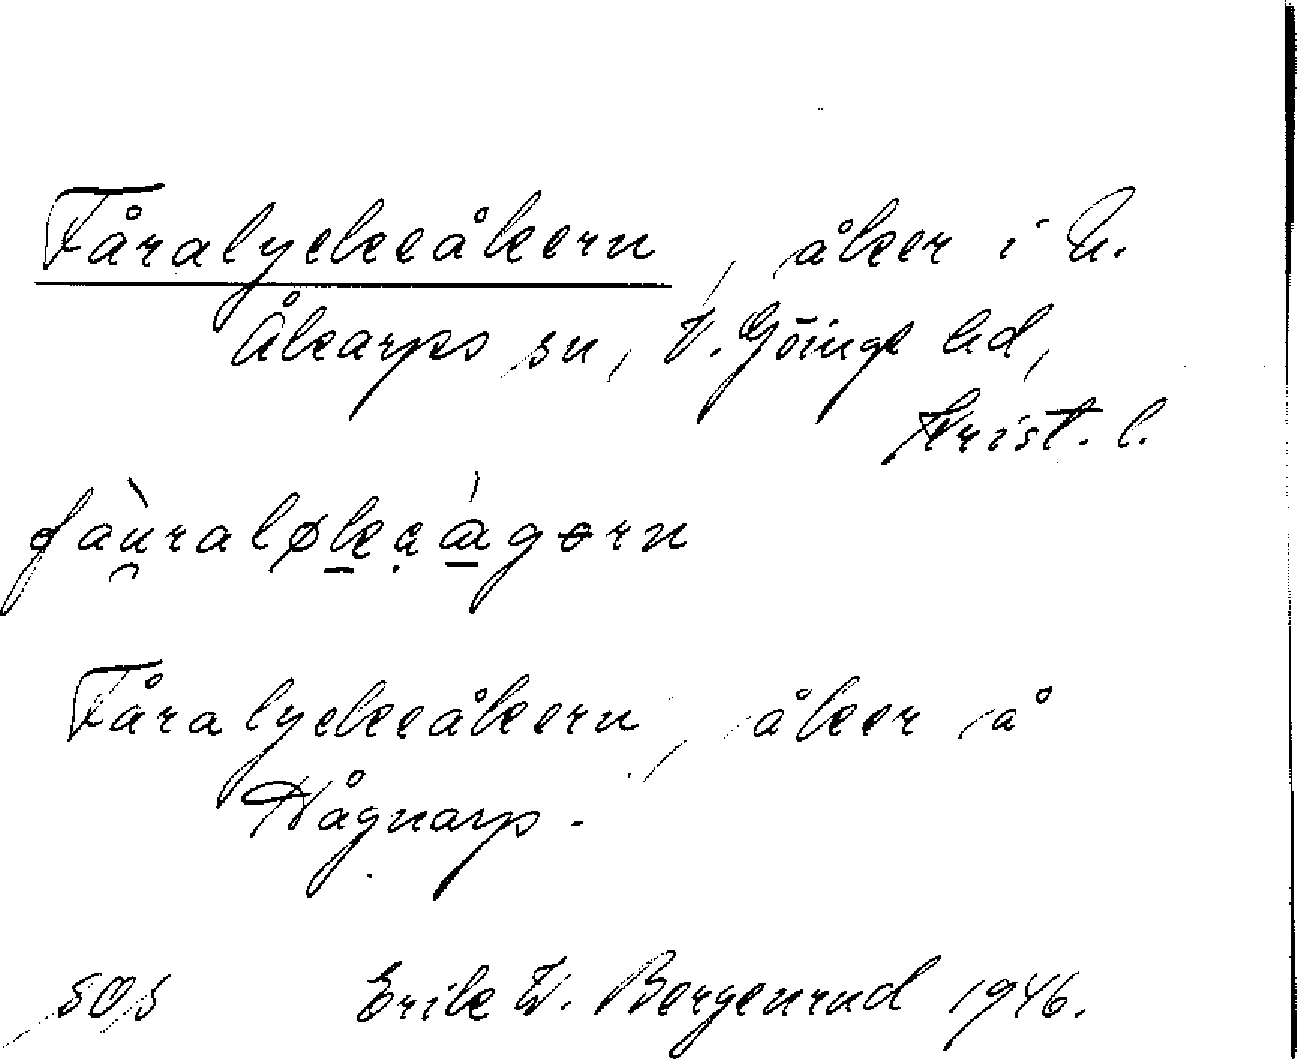 Fåralyckeåkern, åker i N.
Åkarps sn, V. Göinge hd,
Krist. l.
Fåralyckeåkern, åker å
Hågnarp.
505 Erik W. Bergenrud 1946.